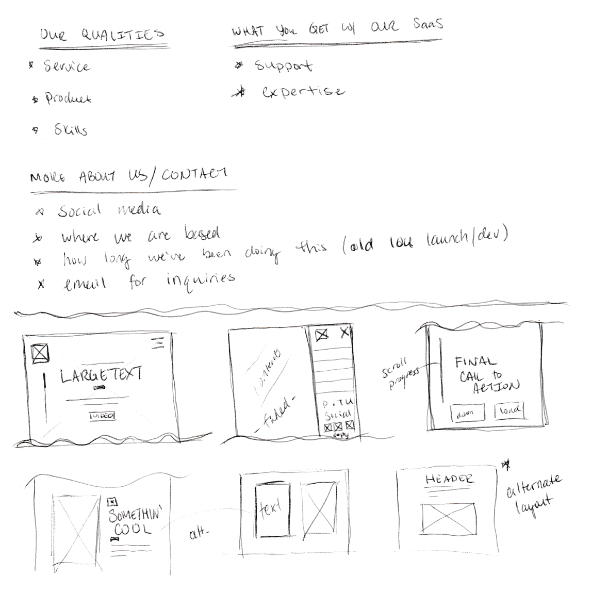 OUR QUALITIES
* Service
* Product
* Skills
WHAT YOU GET W/ OUR SaaS
* Support
* expertise
MORE ABOUT US/CONTACT
* Social media
* where we are based
* how long we've been doing this (old launch/dev)
* email for inquiries
LARGE TEXT
- Faded -
P. TU
Social
scroll
progress
FINAL
CALL to
ACTION
SOMETHIN'
COOL
alt.
text
HEADER
* alternate
layout